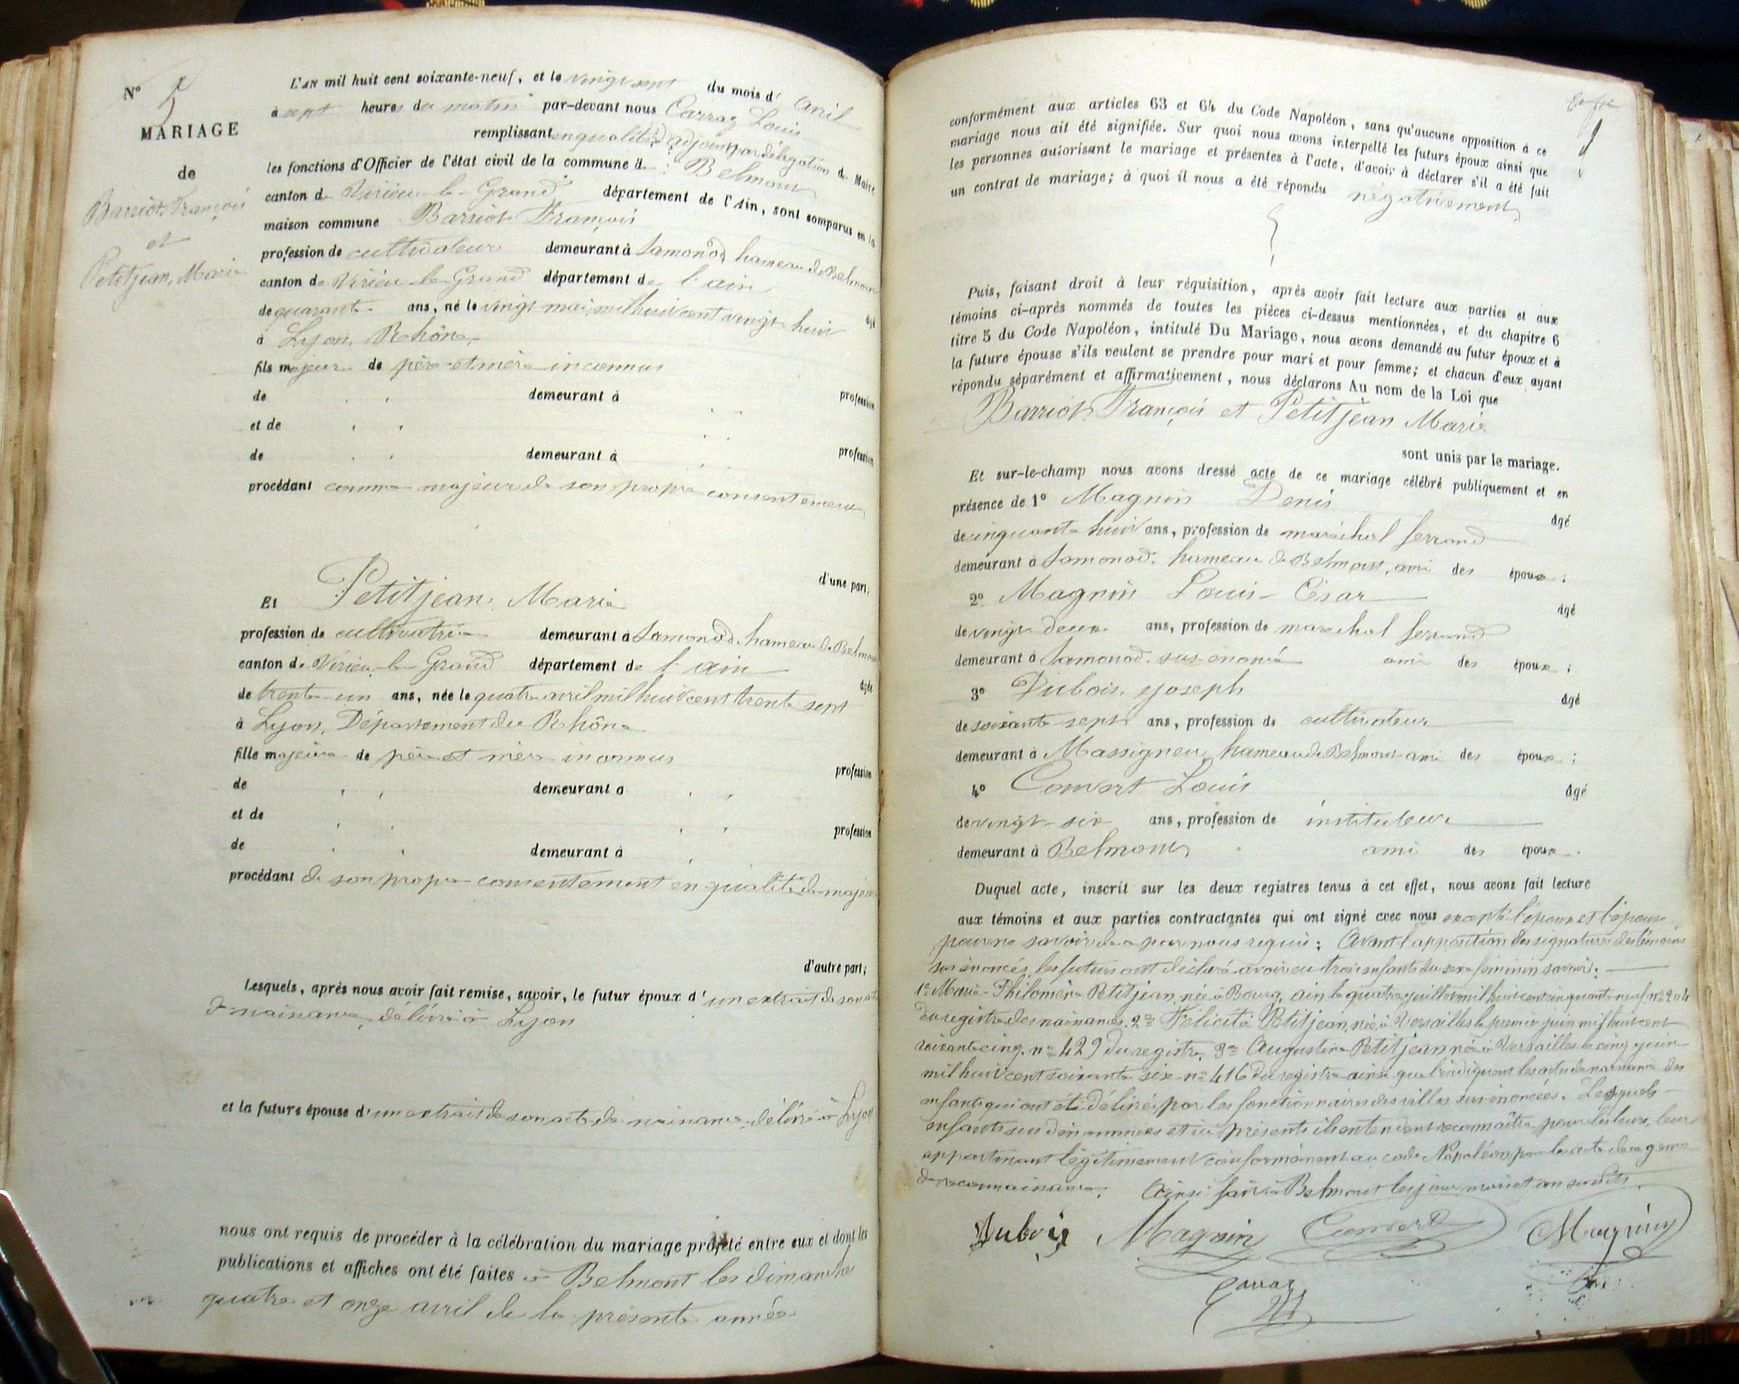 N° 5
MARIAGE
de
Barriot François
et
Petitjean Marie
L'AN mil huit cent soixante-neuf, et le vingt sept du mois d' avril
à sept heures du matin par-devant nous Carraz Louis
remplissant en qualité d'adjoint par délégation du Maire
les fonctions d'Officier de l'état civil de la commune d Belmont
canton de Virieu-le-Grand département de l'Ain, sont comparus en la
maison commune Barriot François
profession de cultivateur demeurant à Samonod hameau de Belmont
canton de Virieu-le-Grand département de l'ain âgé
de quarante ans, né le vingt mai mil huit cent vingt huit
à Lyon, Rhône,
fils majeur de père et mère inconnus
de demeurant à profession
et de
de demeurant à profession
procédant comme majeur de son propre consentement
d'une part;
Et Petitjean, Marie
profession de cultivatrice demeurant à Samonod hameau de Belmont
canton de Virieu-le-Grand département de l'ain âgée
de trente-un ans, née le quatre avril mil huit cent trente sept
à Lyon, Département du Rhône
fille majeure de père et mère inconnus
de demeurant à profession
et de
de demeurant à profession
procédant de son propre consentement en qualité de majeure
d'autre part;
Lesquels, après nous avoir fait remise, savoir, le futur époux d'un extrait de son acte
de naissance, délivré à Lyon
et la future épouse d'un extrait de son acte de naissance, délivré à Lyon
nous ont requis de procéder à la célébration du mariage projeté entre eux et dont les
publications et affiches ont été faites à Belmont les dimanches
quatre et onze avril de la présente année
conformément aux articles 63 et 64 du Code Napoléon, sans qu'aucune opposition à ce
mariage nous ait été signifiée. Sur quoi nous avons interpellé les futurs époux ainsi que
les personnes autorisant le mariage et présentes à l'acte, d'avoir à déclarer s'il a été fait
un contrat de mariage; à quoi il nous a été répondu négativement
Puis, faisant droit à leur réquisition, après avoir fait lecture aux parties et aux
témoins ci-après nommés de toutes les pièces ci-dessus mentionnées, et du chapitre 6
titre 5 du Code Napoléon, intitulé Du Mariage, nous avons demandé au futur époux et à
la future épouse s'ils veulent se prendre pour mari et pour femme; et chacun d'eux ayant
répondu séparément et affirmativement, nous déclarons Au nom de la Loi que
Barriot François et Petitjean Marie
sont unis par le mariage.
Et sur-le-champ nous avons dressé acte de ce mariage célébré publiquement et en
présence de 1° Magnin Denis âgé
de cinquante huit ans, profession de maréchal ferrand
demeurant à Samonod, hameau de Belmont, ami des époux;
2° Magnin Louis-César âgé
de vingt deux ans, profession de maréchal ferrand
demeurant à Samonod sus énoncé ami des époux;
3° Dubois Joseph âgé
de soixante sept ans, profession de cultivateur
demeurant à Massigneu, hameau de Belmont ami des époux;
4° Convert Louis âgé
de vingt-six ans, profession de instituteur
demeurant à Belmont ami des époux.
Duquel acte, inscrit sur les deux registres tenus à cet effet, nous avons fait lecture
aux témoins et aux parties contractantes qui ont signé avec nous excepté l'époux et l'épouse
pour ne savoir de ce par nous requis; Avant l'apposition des signatures des témoins
sus énoncés, les futurs ont déclaré avoir eu trois enfants du sexe féminin savoir:
1° Marie-Philomène Petitjean, née à Bourg, ain le quatre juillet mil huit cent cinquante neuf n° 204
du registre des naissances, 2° Félicité Petitjean, née à Versailles le premier juin mil huit cent
soixante cinq, n° 429 du registre, 3° Augustine Petitjean née à Versailles le cinq juin
mil huit cent soixante six n° 416 du registre ainsi que l'indiquent les actes de naissance des
enfants qui ont été délivrés par les fonctionnaires des villes sus énoncées. Lesquels
enfants sus dénommées et ici présents ils entendent reconnaître pour les leurs, leur
appartenant légitimement conformément au code Napoléon pour les actes de ce genre
de reconnaissance. Ainsi fait à Belmont les jour mois et an susdits.
Dubois Magnin Convert Magnin
Carraz